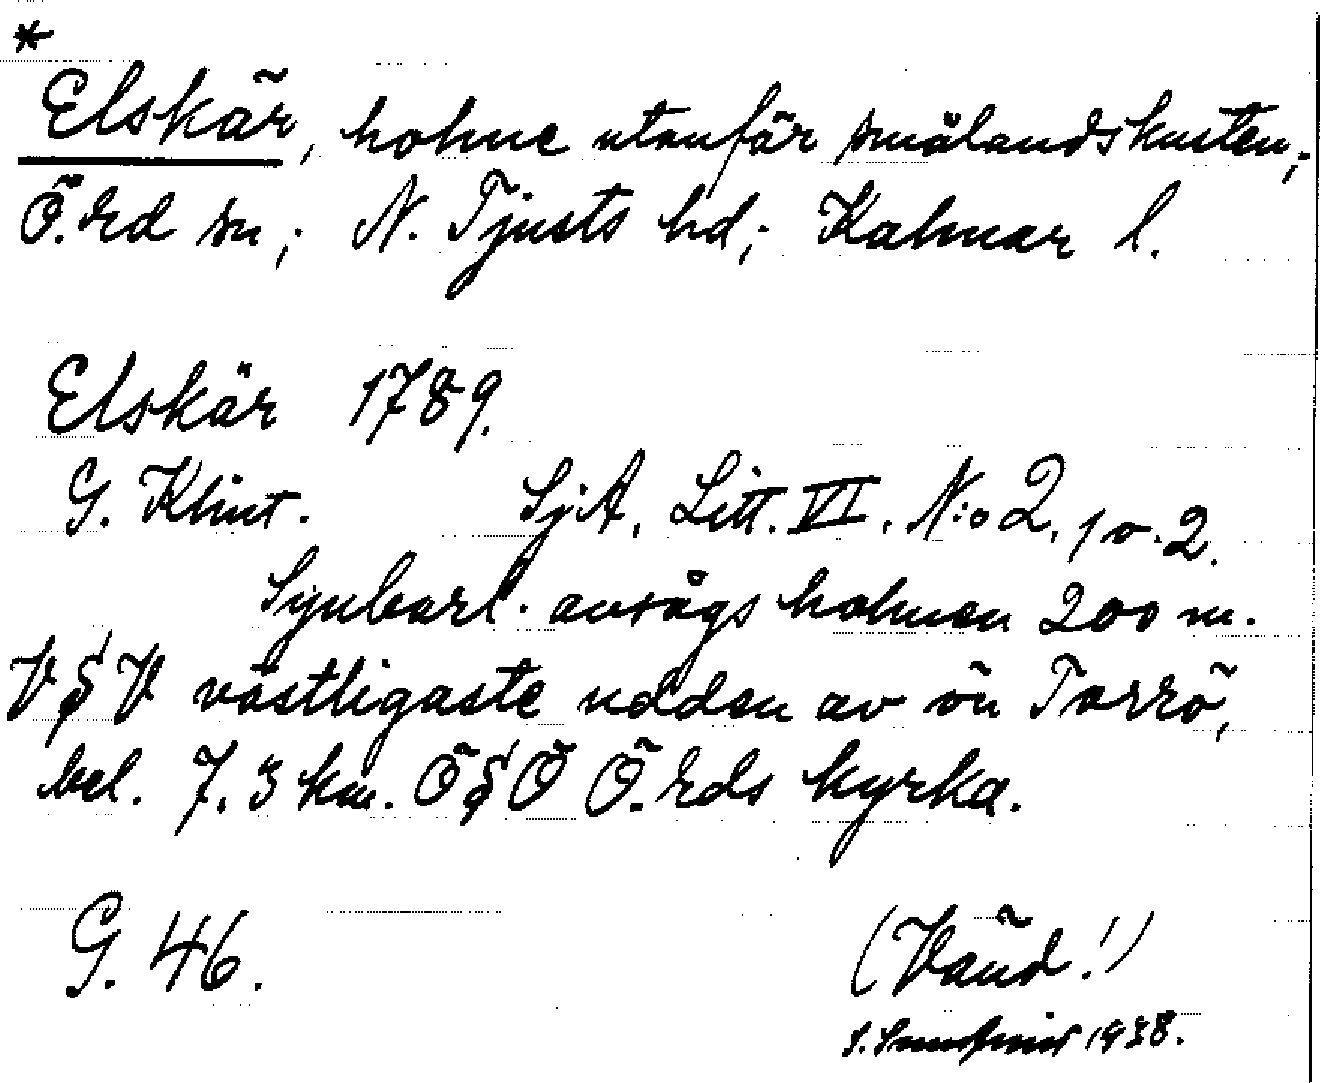 *
Elskär, holme utanför smålandskusten;
Ö. Ed sn; N. Tjusts hd; Kalmar l.
Elskär 1789.
G. Klint. SjA, Litt. VI, N:o 2, 1 o. 2.
Synbarl. avsågs holmen 200 m.
V§V västligaste udden av ön Torrö,
bel. 7.3 km. Ö§Ö Ö. Eds kyrka.
G. 46. (Vänd!)
1938.